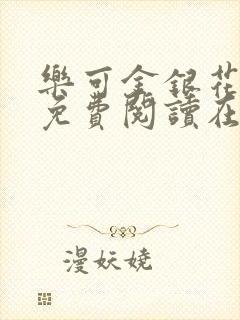 樂可金銀花
免費閱讀在
漫妖嬈